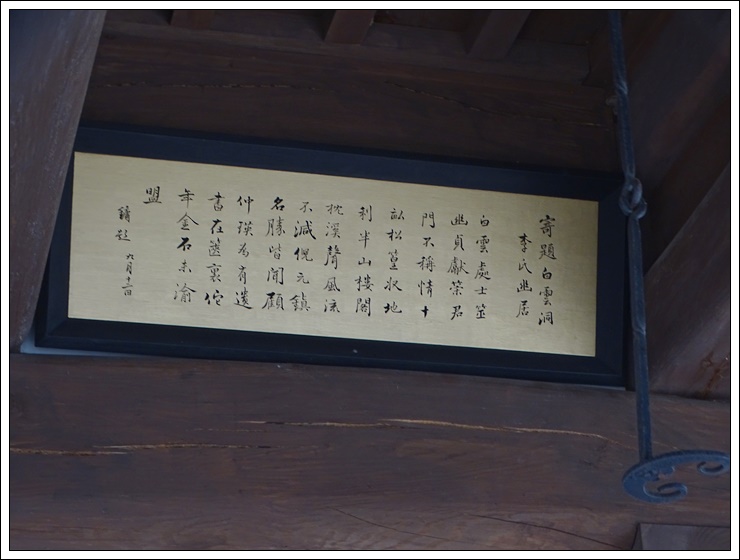 寄題白雲洞
李氏幽居
白雲處士筮
幽貞獻策君
門不稱情十
畝松篁收地
利半山樓閣
枕溪聲風流
不減倪元鎮
名勝皆聞顧
仲瑛為有遺
書在篋裏佗
年金石未渝
盟
題 九月三日